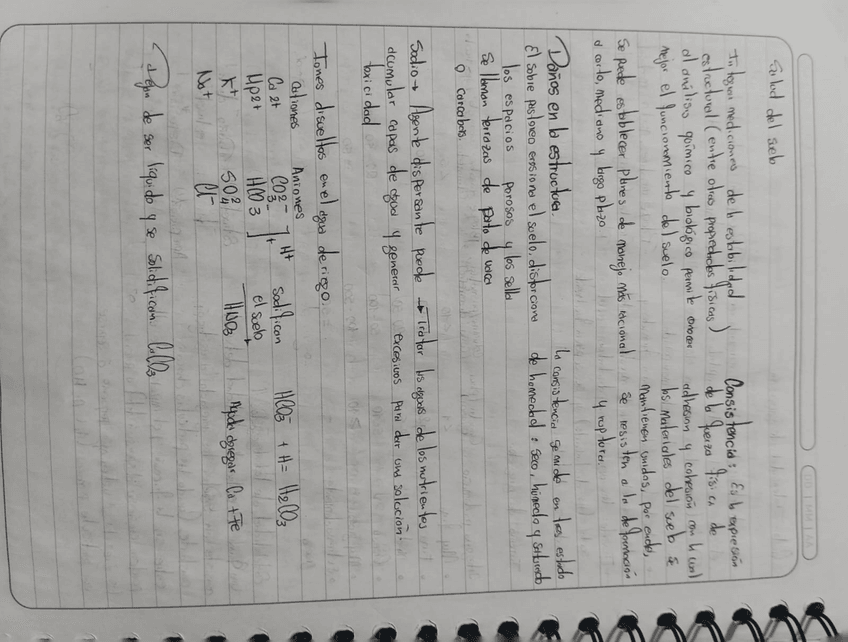 Salud del suelo
Integrar mediciones de la estabilidad
estructural (entre otras propiedades físicas)
al análisis químico y biológico permite conocer
mejor el funcionamiento del suelo.
Se puede establecer planes de manejo más racional
a corto, mediano y largo plazo
Consistencia: Es la expresión
de la fuerza física de
adhesión y cohesión con la cual
los materiales del suelo se
mantienen unidos, por ende,
se resisten a la deformación
y ruptura.
Daños en la estructura.
El sobre pastoreo erosiona el suelo, distorciona
los espacios porosos y los sella
Se llaman terrazas de pata de vaca
o carcabas.
La consistencia se mide en tres estado
de homedad: seco, húmedo y saturado
Sodio → Agente dispersante puede
acumular capas de agua y generar
toxicidad
→ tratar las aguas de los nutrientes
excesivos para dar una solución.
Iones disueltos en el agua de riego.
Cationes Aniones
Ca 2+ CO3 2- H+ sodifican HCO3- + H = H2CO3
Mg 2+ HCO3 - el suelo
K+ SO4 2- HNO3 Ayuda agregar Ca + Fe
Na+ Cl-
Dejan de ser líquido y se solidifican CaCO3